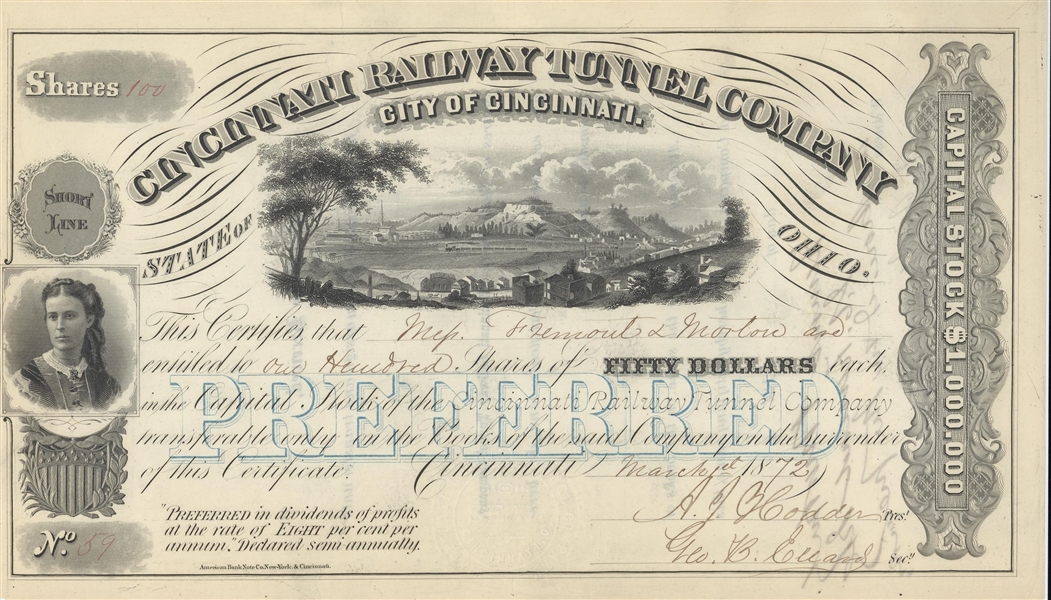 Shares 100
CINCINNATI RAILWAY TUNNEL COMPANY
CITY OF CINCINNATI.
STATE OF OHIO.
SHORT
LINE
CAPITAL STOCK $1,000,000
This Certifies that Mess. Fremont & Morton are
entitled to One Hundred Shares of FIFTY DOLLARS each
in the Capital Stock of the Cincinnati Railway Tunnel Company
PREFERRED
transferable only on the Books of the said Company on the surrender
of this Certificate. Cincinnati March 1st 1872
"PREFERRED in dividends of profits
at the rate of EIGHT per cent per
annum." Declared semi-annually.
A. J. Hodder Prest.
Geo. B. Secy.
No. 59
American Bank Note Co. New-York. & Cincinnati.